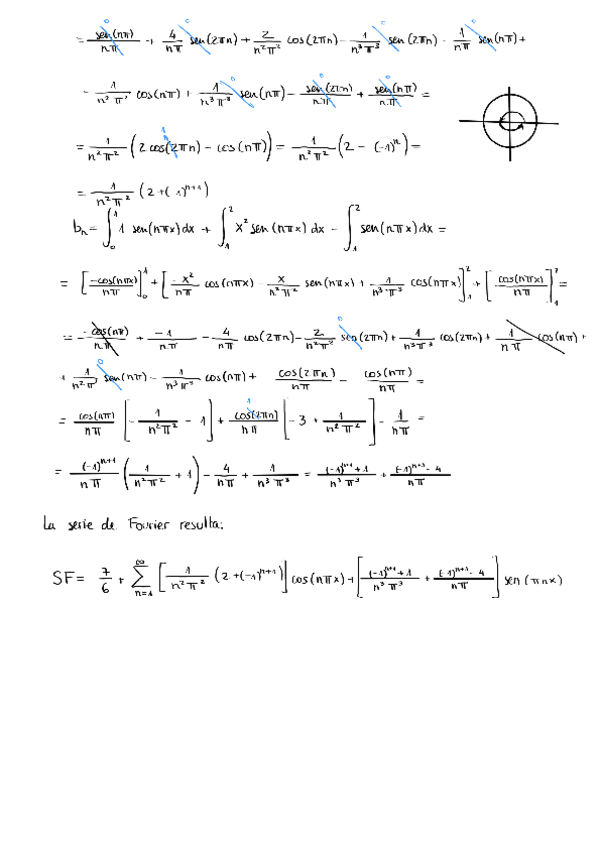 = sen(nπ)/nπ + 4/nπ sen(2πn) + 2/n²π² cos(2πn) - 1/n³π³ sen(2πn) - 1/π sen(nπ) +
- 1/n²π² cos(nπ) + 1/n³π³ sen(nπ) - sen(2πn)/nπ + sen(nπ)/nπ =
= 1/n²π² (2cos(2πn) - cos(nπ)) = 1/n²π² (2 - (-1)ⁿ) =
= 1/n²π² (2+(-1)ⁿ⁺¹)
bₙ = ∫₀¹ 1 sen(nπx)dx + ∫₁² x² sen(nπx) dx - ∫₁² sen(nπx)dx =
= [-cos(nπx)/nπ]₀¹ + [-x²/nπ cos(nπx) - x/n²π² sen(nπx) + 1/n³π³ cos(nπx)]₁² + [cos(nπx)/nπ]₁² =
= -cos(nπ)/nπ + -1/nπ - 4/nπ cos(2πn) - 2/n²π² sen(2πn) + 1/n³π³ cos(2πn) + 1/nπ cos(nπ) +
+ 1/n²π² sen(nπ) - 1/n³π³ cos(nπ) + cos(2πn)/nπ - cos(nπ)/nπ =
= cos(nπ)/nπ [- 1/n²π² - 1] + cos(2πn)/nπ [-3 + 1/n²π²] - 1/nπ =
= (-1)ⁿ⁺¹/nπ (1/n²π² + 1) - 4/nπ + 1/n³π³ = (-1)ⁿ⁺¹+1/n³π³ + (-1)ⁿ⁺¹-4/nπ
La serie de Fourier resulta:
SF = 7/6 + ∑ₙ₌₁^∞ [1/n²π² (2+(-1)ⁿ⁺¹)] cos(nπx) + [(-1)ⁿ⁺¹+1/n³π³ + (-1)ⁿ⁺¹-4/nπ] sen(πnx)